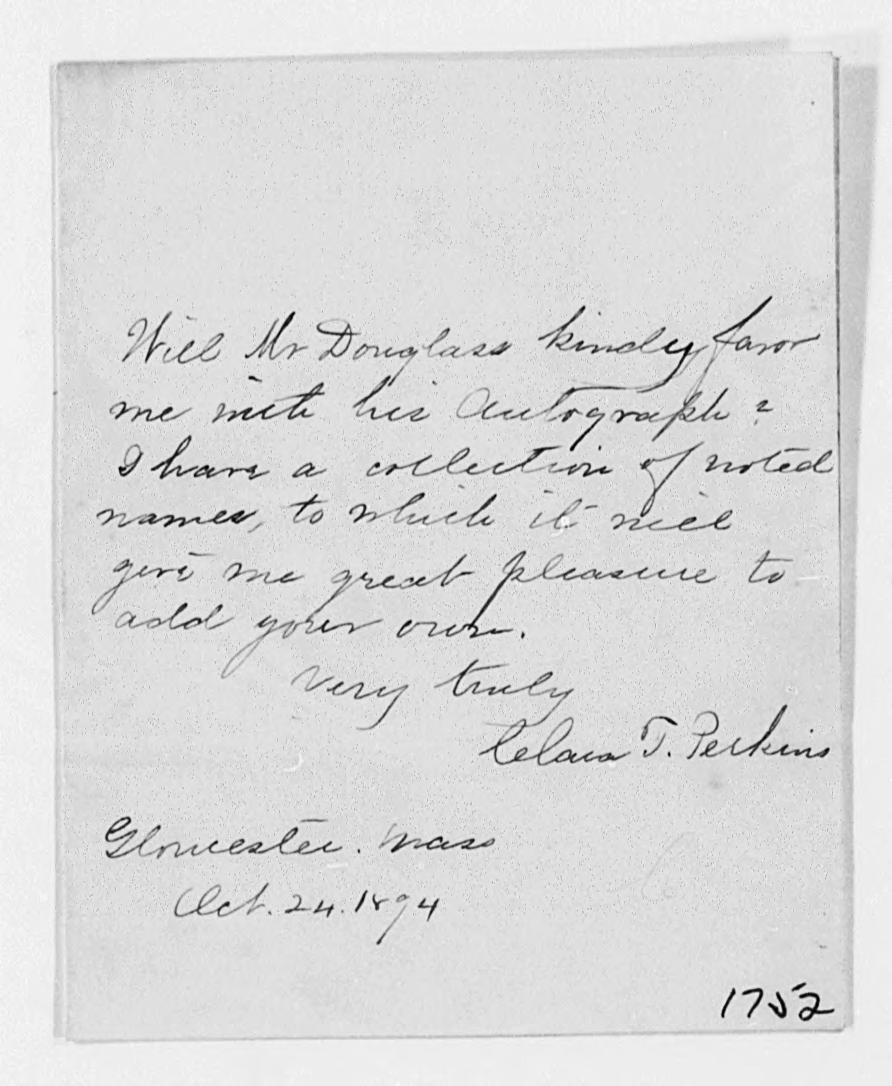 Will Mr Douglass kindly favor
me with his Autograph?
I have a collection of noted
names, to which it will
give me great pleasure to
add your own.
Very truly
Clara T. Perkins
Gloucester. Mass
Oct. 24. 1894
1752